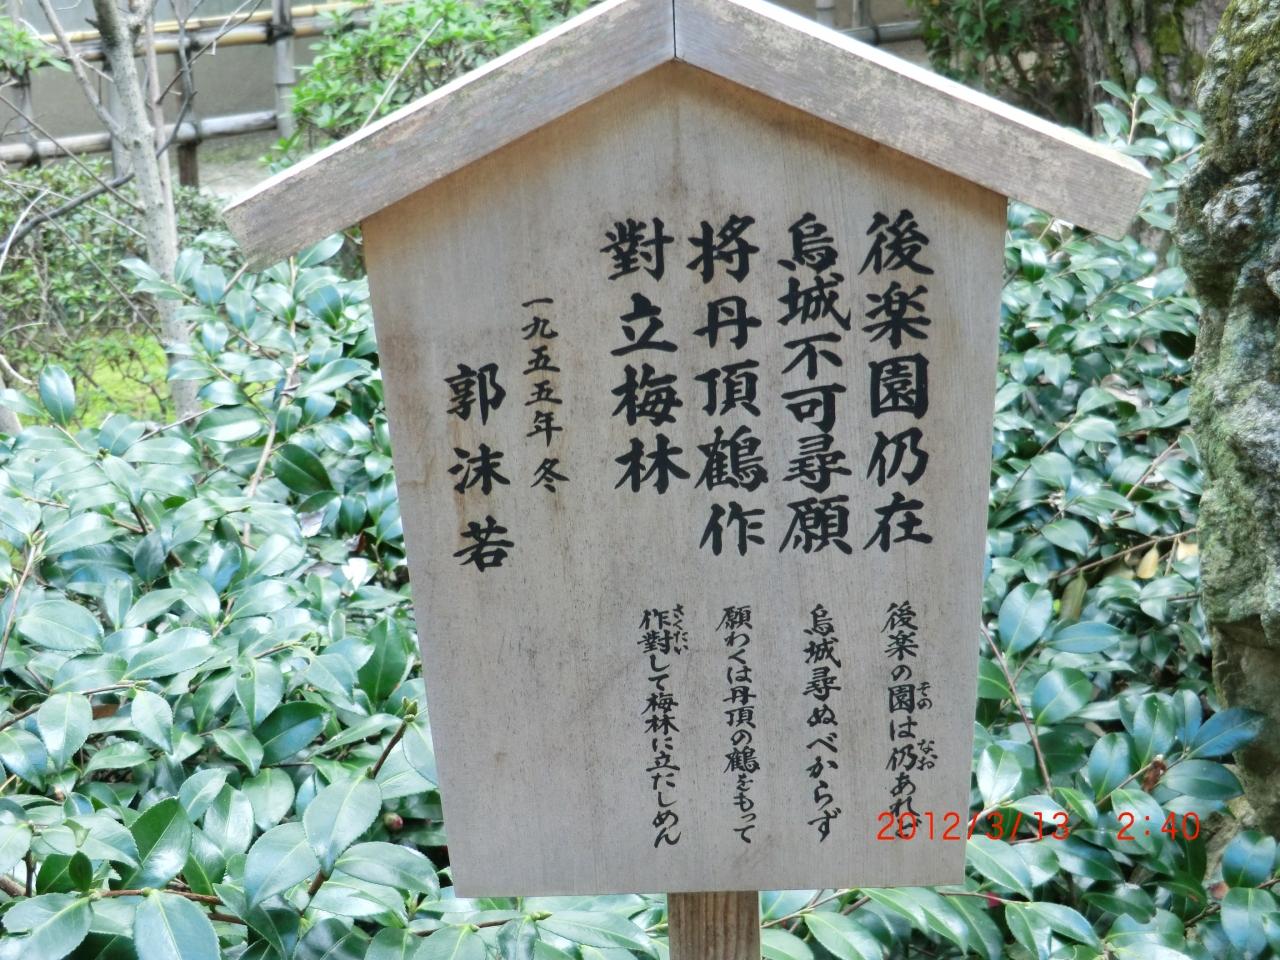 後楽園仍在
烏城不可尋願
将丹頂鶴作
對立梅林
一九五五年冬
郭沫若
後楽の園は仍あれど
その
なお
烏城尋ぬべからず
願わくは丹頂の鶴をもって
作對して梅林に立たしめん
さくたい
2012/3/13 2:40